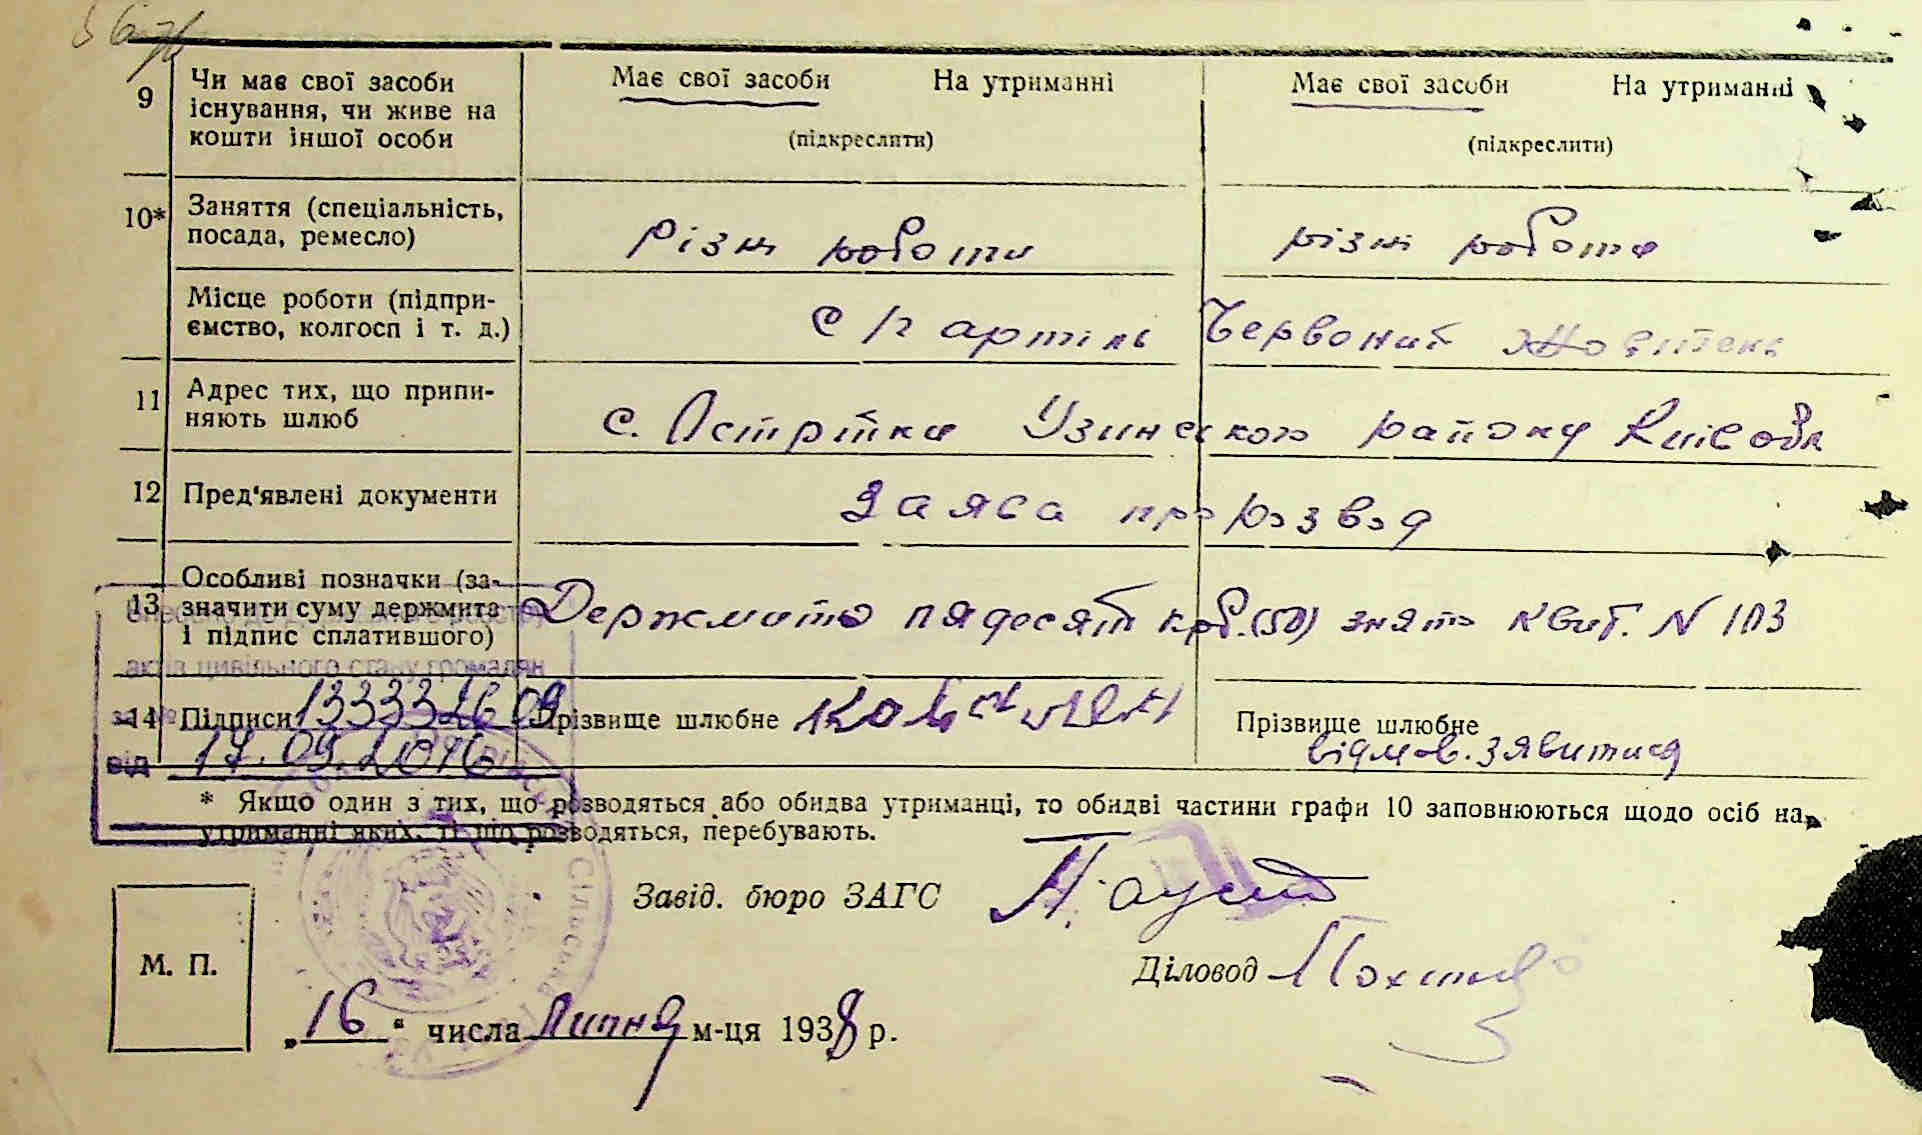 56
9 Чи має свої засоби існування, чи живе на кошти іншої особи
Має свої засоби На утриманні
(підкреслити)
Має свої засоби На утриманні
(підкреслити)
10* Заняття (спеціальність, посада, ремесло)
Різні роботи
різні роботи
Місце роботи (підпри-
ємство, колгосп і т. д.)
с/г артіль Червоний Жовтень
11 Адрес тих, що припи-
няють шлюб
с. Острійки Узинського району Київ обл
12 Пред'явлені документи
Заява про розвод
13 Особливі позначки (за-
значити суму держмита
і підпис сплатившого)
Держмито пядесят крб. (50) знято квит. N 103
актів цивільного стану громадян
14 Підписи
Прізвище шлюбне
Прізвище шлюбне
відмов. зявитися
від 17.09.2016
* Якщо один з тих, що розводяться або обидва утриманці, то обидві частини графи 10 заповнюються щодо осіб на
утриманні яких, ті що розводяться, перебувають.
Завід. бюро ЗАГС
Діловод
М. П.
„16“ числа Липня м-ця 1938 р.